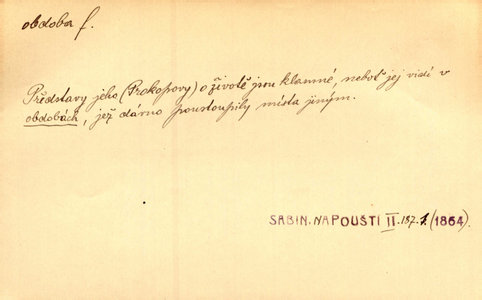 obdoba f.
Představy jeho (Prokopovy) o životě jsou klamné, neboť jej vidí v
obdobách, jež dávno poustoupily místa jiným.
SABIN. NAPOUŠTI II. 187. 1. (1864).